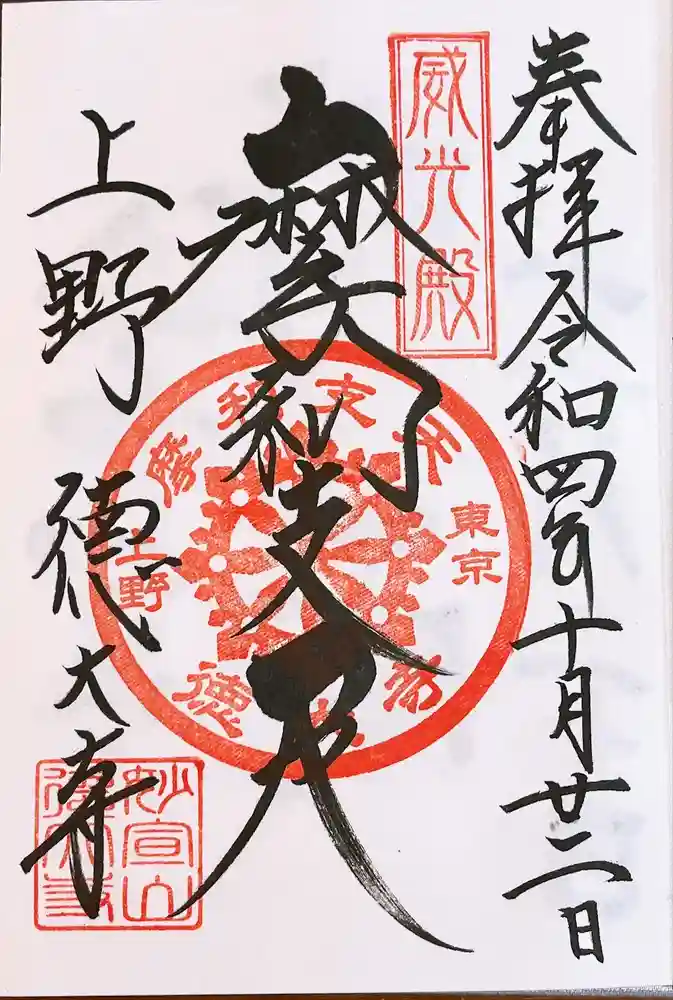 奉拝 令和四年十月廿二日
威光殿
摩利支天
上野 徳大寺
摩利支天
東京
上野
徳大寺
妙宣山
徳大寺